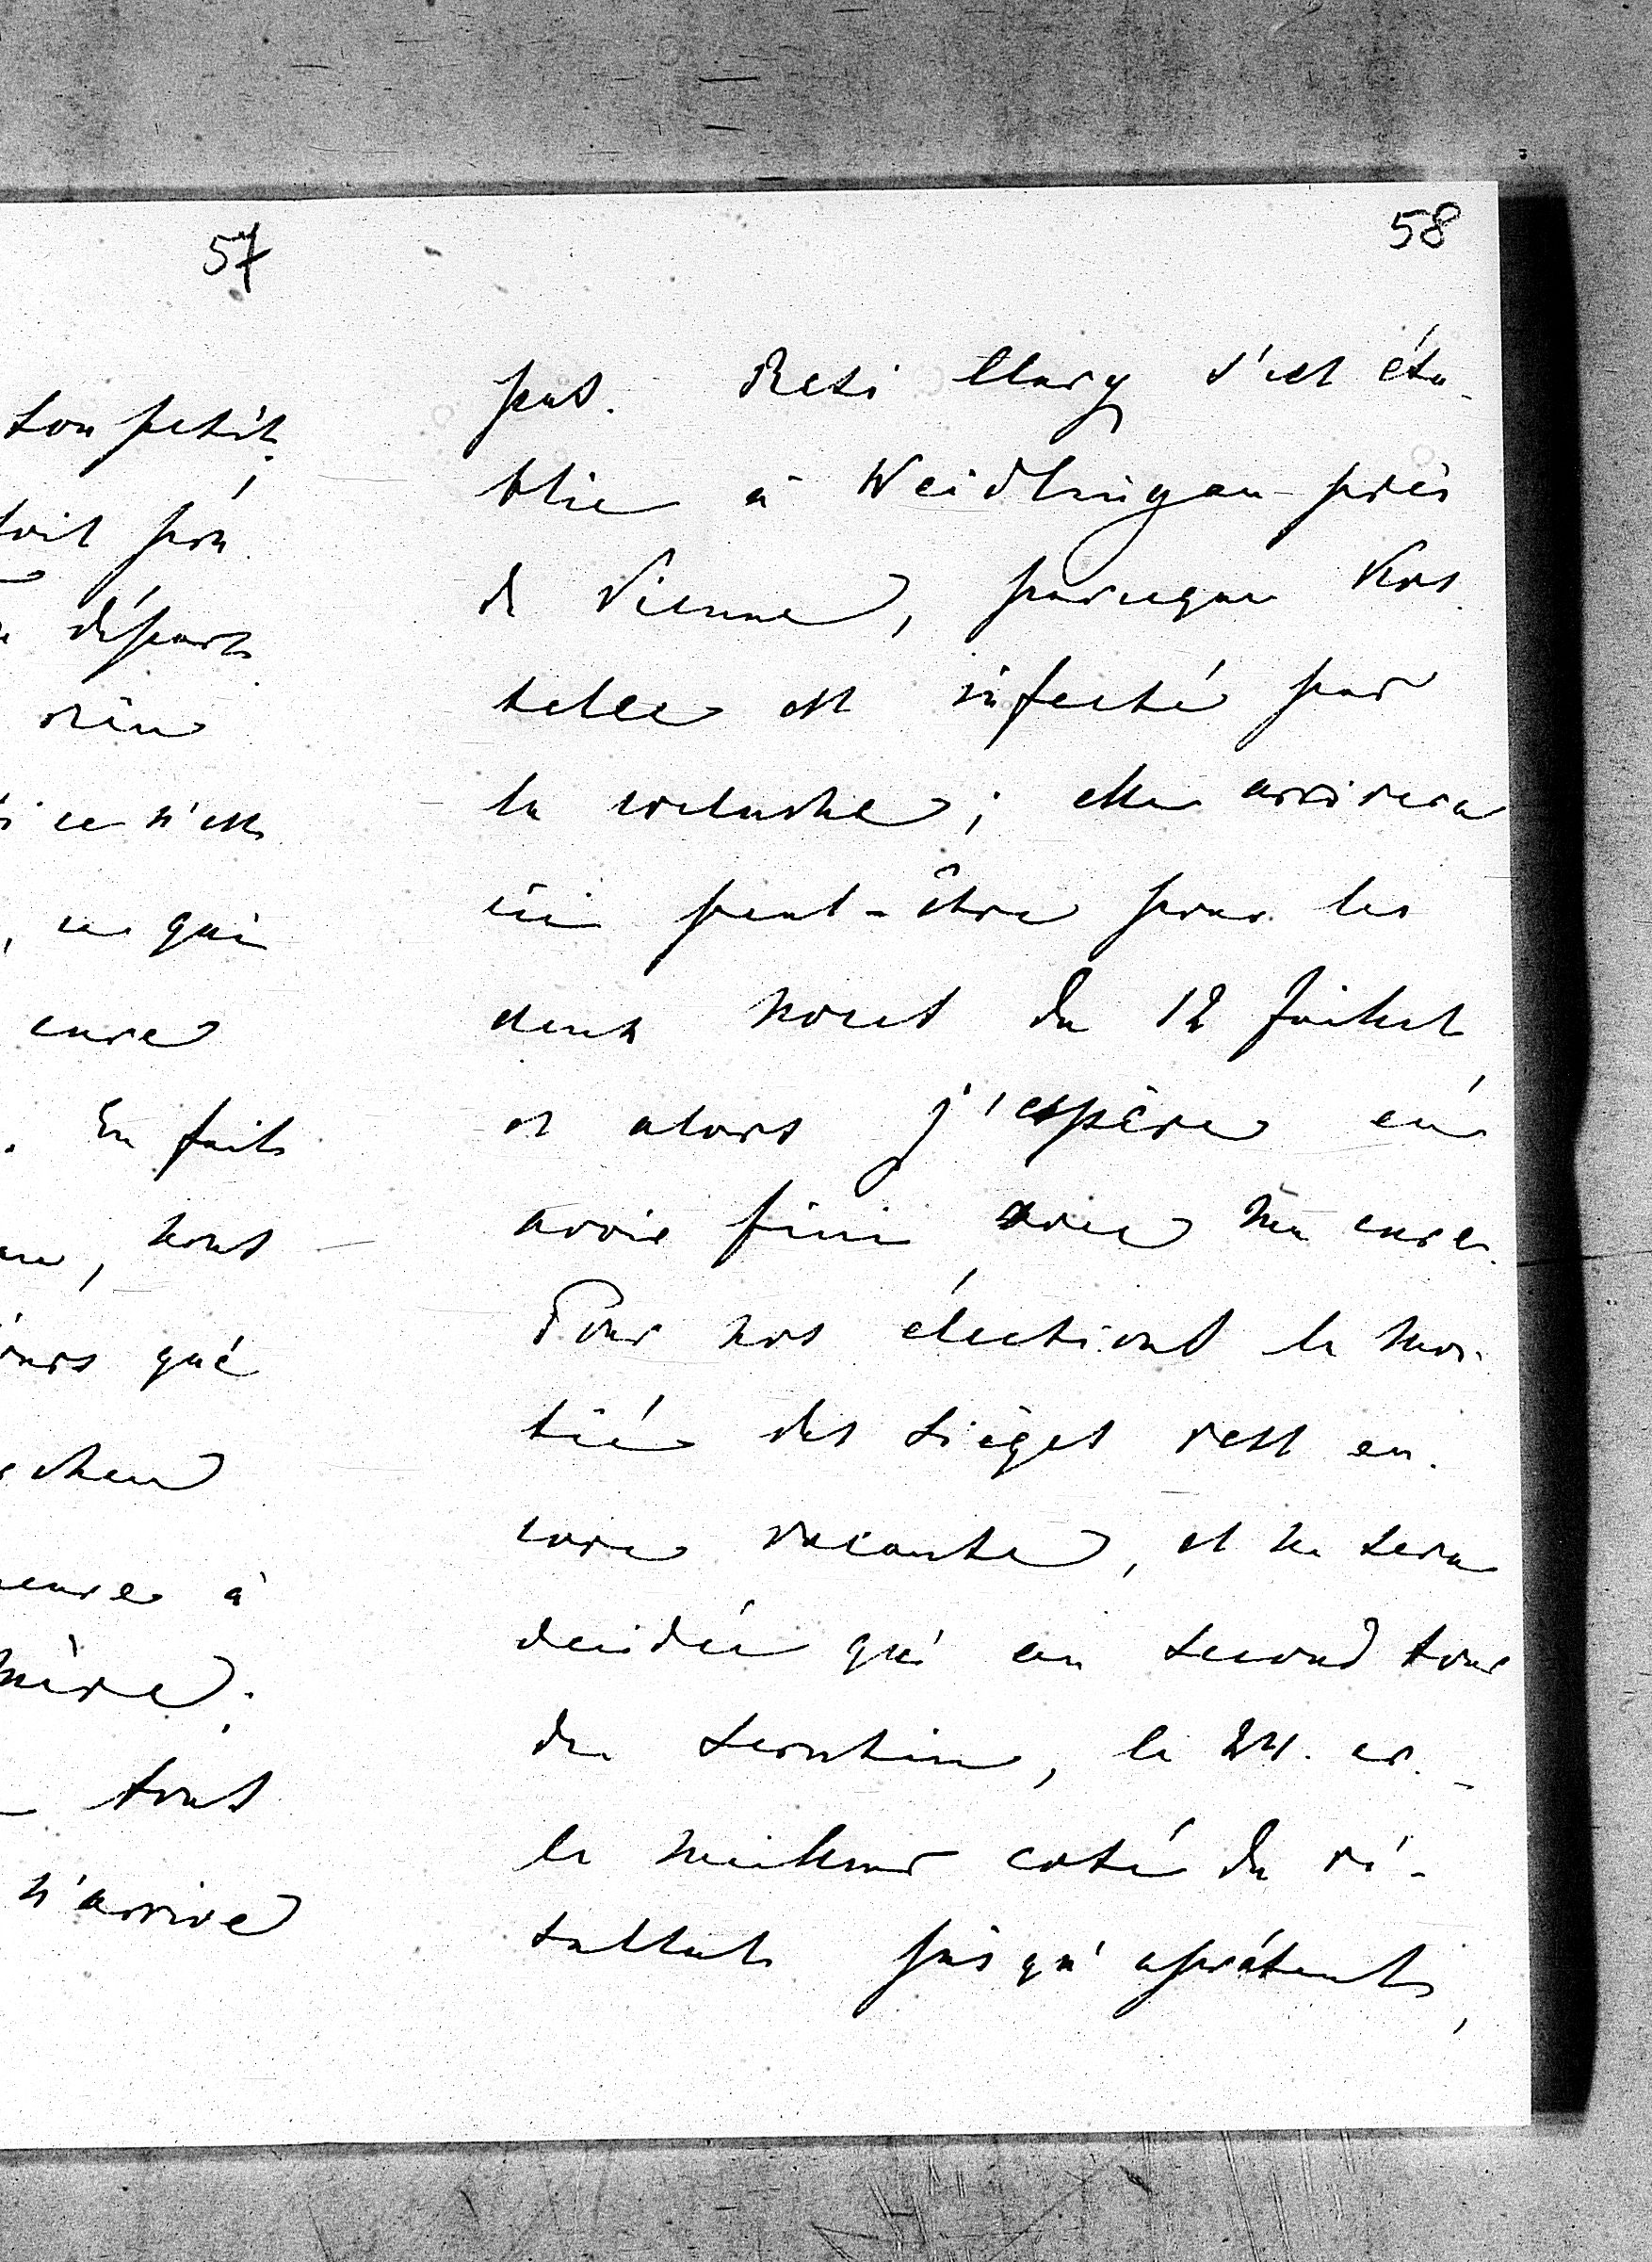 57
ton petit
soit pou
départ
rien
si ce n'est
, ce qui
cure
. En fait
, nous
jours que
à
mère.
tout
n'arrive
58
pas. Resi Clary s'est éta-
blie à Weidlingau près
de Vienne, parceque Kos
telec est infecté par
la coeluche; elle arrivera
ici peut-être pour les
deux noces du 12 Juillet
et alors j'espère en
avoir fini avec ma cure.
Pour nos élections la moi-
tié des sièges est en-
core vacante, et ne sera
decidée qu'au second tour
du scrutin, le 24. cr.-
le meilleur coté du ré-
sultat jusqu'aprésent,